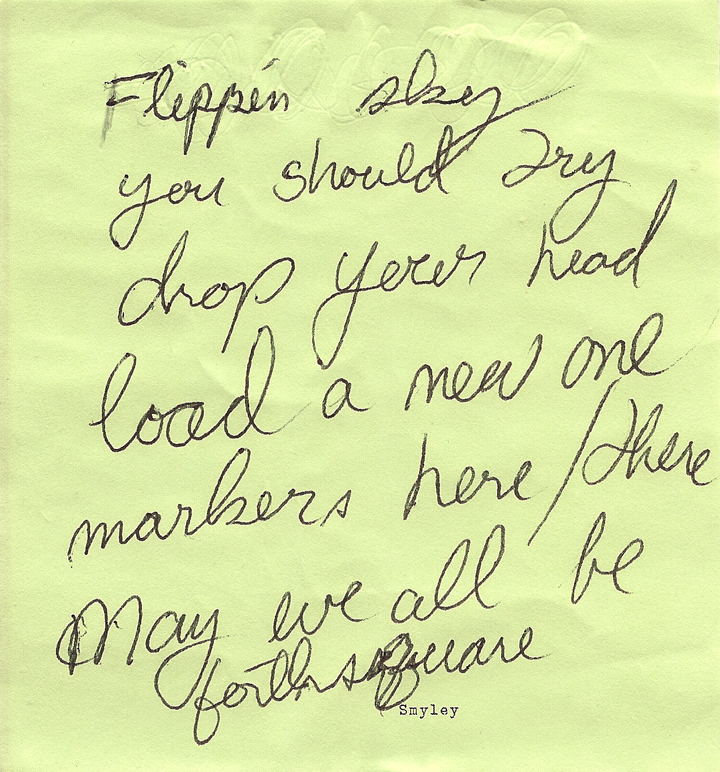 Flippin sky
you should try
drop yer head
load a new one
markers here / there
May we all be
forthsquare
Smyley